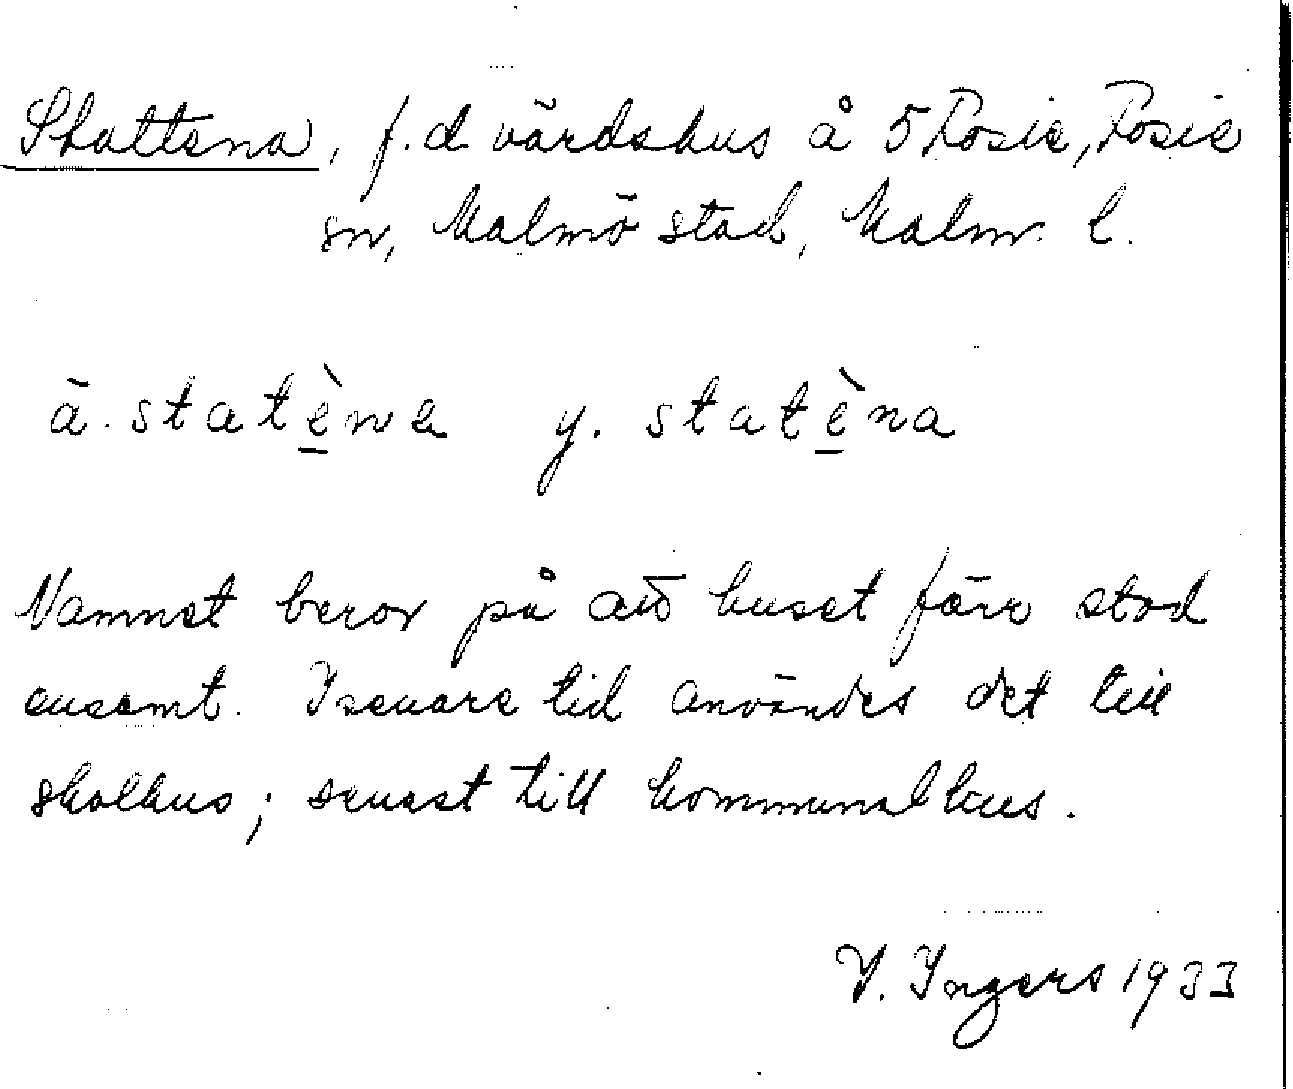 Stattena, f.d värdshus å 5 Fosie, Fosie
sn, Malmö stad, Malm. l.
ä. statène y. statèna
Namnet beror på att huset förr stod
ensamt. I senare tid användes det till
skolhus; senast till kommunalhus.
I. Ingers 1933